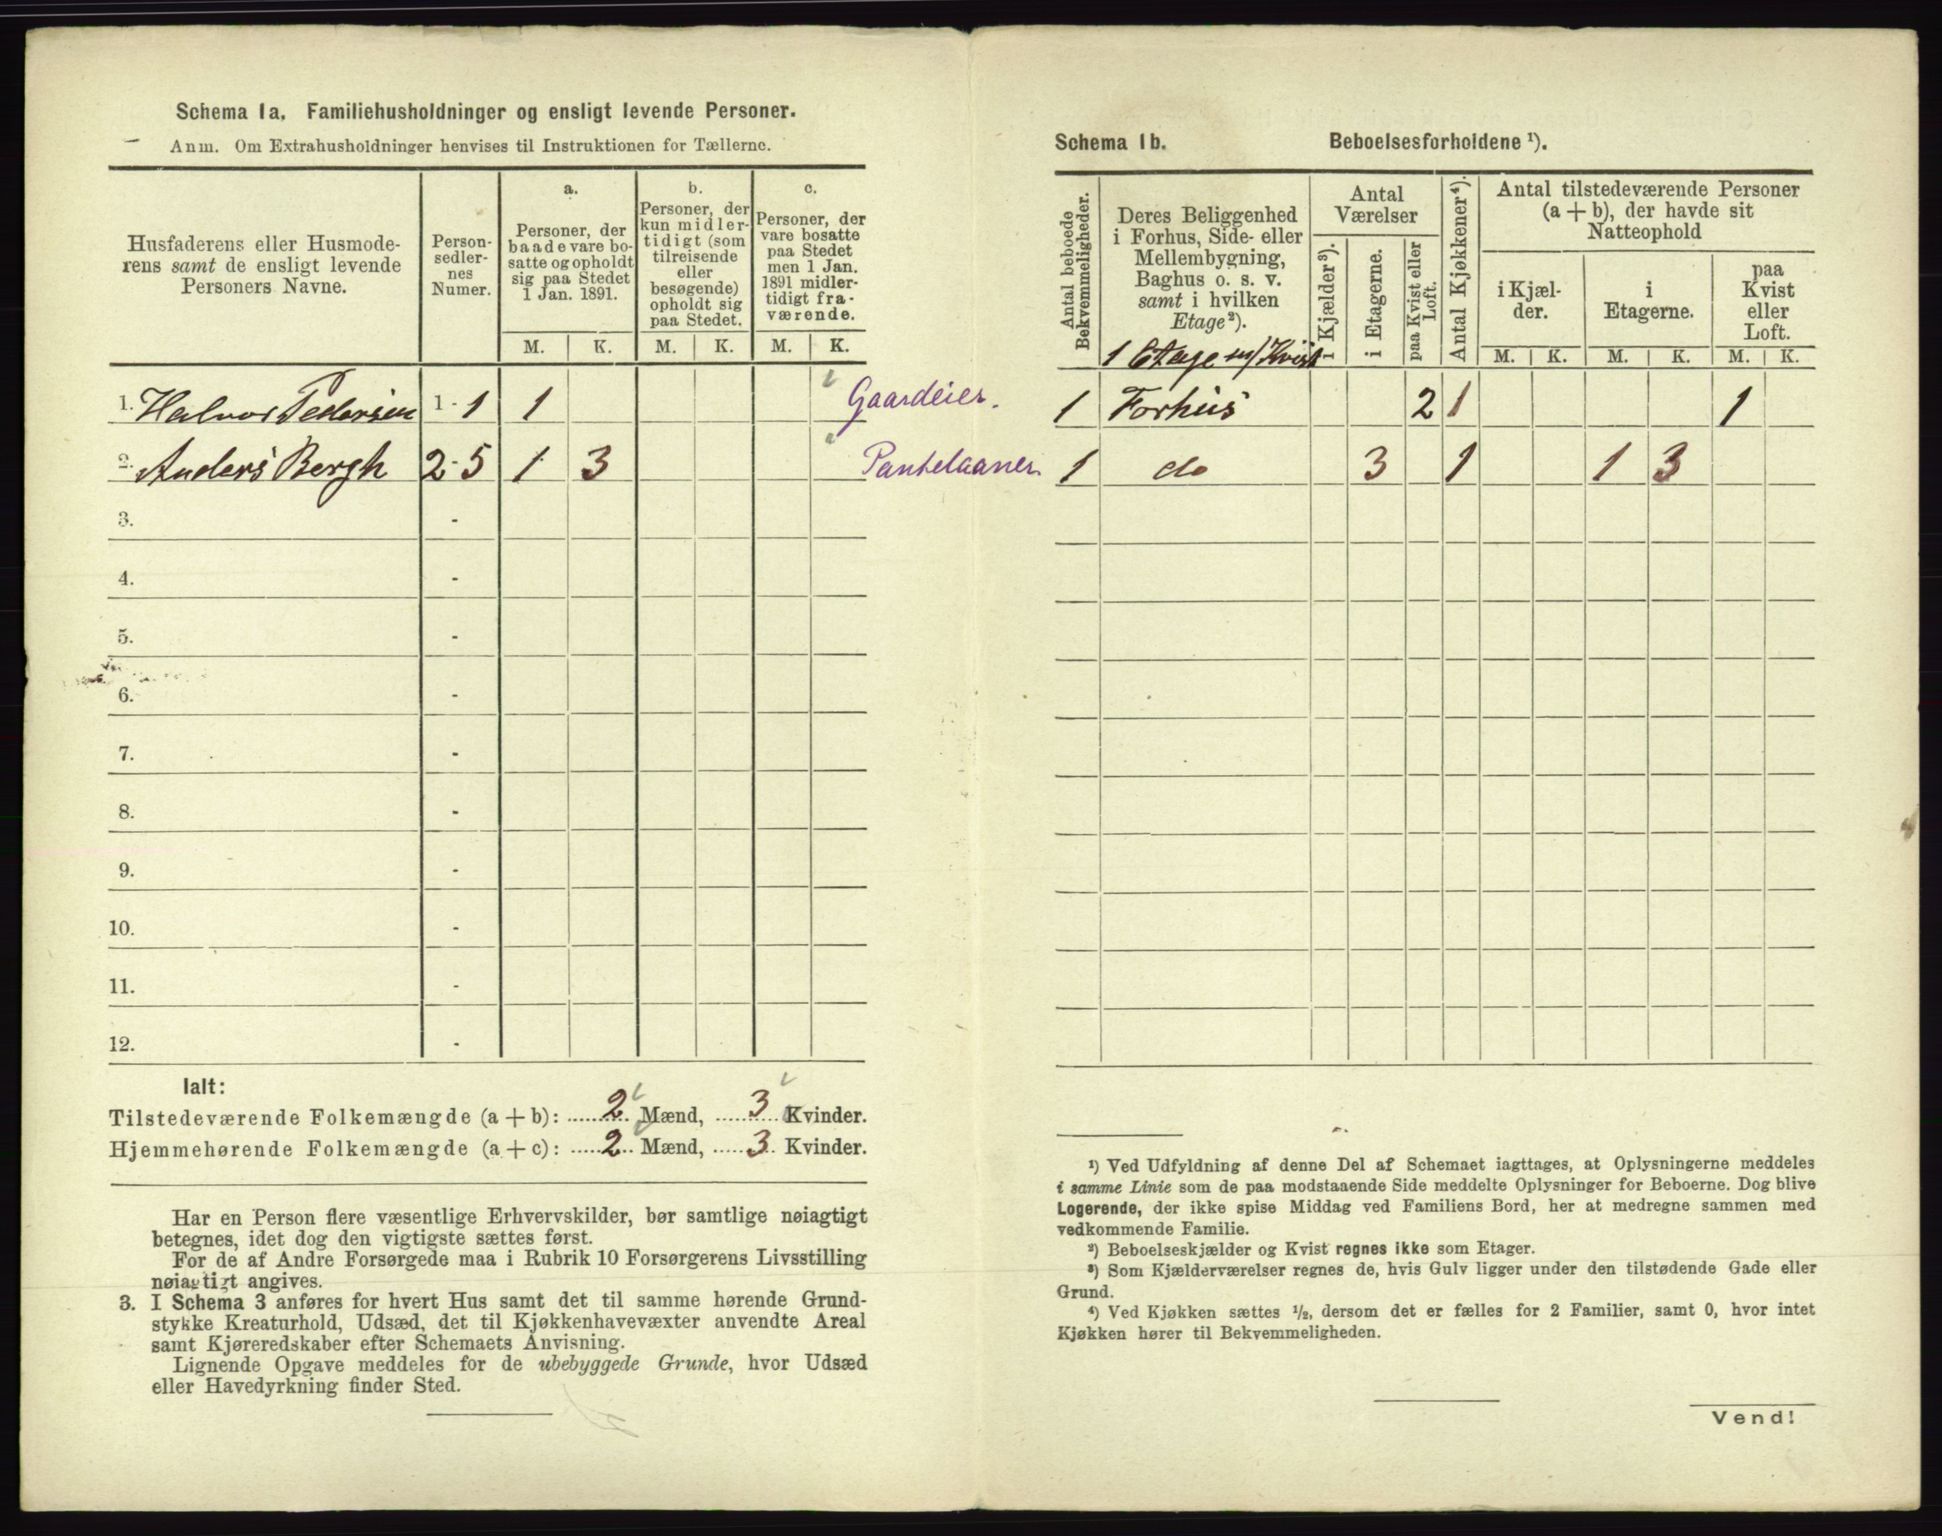 Schema 1a. Familiehusholdninger og ensligt levende Personer.
Anm. Om Extrahusholdninger henvises til Instruktionen for Tællerne.
Husfaderens eller Husmode-
rens samt de ensligt levende
Personers Navne.
Person-
sedler-
nes
Numer.
a.
Personer, der
baade vare bo-
satte og opholdt
sig paa Stedet
1 Jan. 1891.
b.
Personer, der
kun midler-
tidigt (som
tilreisende
eller
besøgende)
opholdt sig
paa Stedet.
c.
Personer, der
vare bosatte
paa Stedet
men 1 Jan.
1891 midler-
tidigt fra-
værende.
M. K. M. K. M. K.
1. Halvor Pedersen 1 - 1 1 Gaardeier.
2. Anders Bergh 2 - 5 1 3 Panhelaaner
3. -
4. -
5. -
6. -
7. -
8. -
9. -
10. -
11. -
12. -
Ialt:
Tilstedeværende Folkemængde (a + b): 2 Mænd, 3 Kvinder.
Hjemmehørende Folkemængde (a + c): 2 Mænd, 3 Kvinder.
Har en Person flere væsentlige Erhvervskilder, bør samtlige nøiagtigt
betegnes, idet dog den vigtigste sættes først.
For de af Andre Forsørgede maa i Rubrik 10 Forsørgerens Livsstilling
nøiagtigt angives.
3. I Schema 3 anføres for hvert Hus samt det til samme hørende Grund-
stykke Kreaturhold, Udsæd, det til Kjøkkenhavevæxter anvendte Areal
samt Kjøreredskaber efter Schemaets Anvisning.
Lignende Opgave meddeles for de ubebyggede Grunde, hvor Udsæd
eller Havedyrkning finder Sted.
Schema 1b. Beboelsesforholdene ¹).
Antal beboede
Bekvemmeligheder.
Deres Beliggenhed
i Forhus, Side- eller
Mellembygning,
Baghus o. s. v.
samt i hvilken
Etage²).
1 Etage m/Kvist
Antal
Værelser
i Kjælder³).
i Etagerne.
paa Kvist eller
Loft.
Antal Kjøkkener⁴).
Antal tilstedeværende Personer
(a + b), der havde sit
Natteophold
i Kjæl-
der.
i
Etagerne.
paa
Kvist
eller
Loft.
M. K. M. K. M. K.
1 Forhus 2 1 1
1 do 3 1 1 3
¹) Ved Udfyldning af denne Del af Schemaet iagttages, at Oplysningerne meddeles
i samme Linie som de paa modstaaende Side meddelte Oplysninger for Beboerne. Dog blive
Logerende, der ikke spise Middag ved Familiens Bord, her at medregne sammen med
vedkommende Familie.
²) Beboelseskjælder og Kvist regnes ikke som Etager.
³) Som Kjælderværelser regnes de, hvis Gulv ligger under den tilstødende Gade eller
Grund.
⁴) Ved Kjøkken sættes ½, dersom det er fælles for 2 Familier, samt 0, hvor intet
Kjøkken hører til Bekvemmeligheden.
Vend!